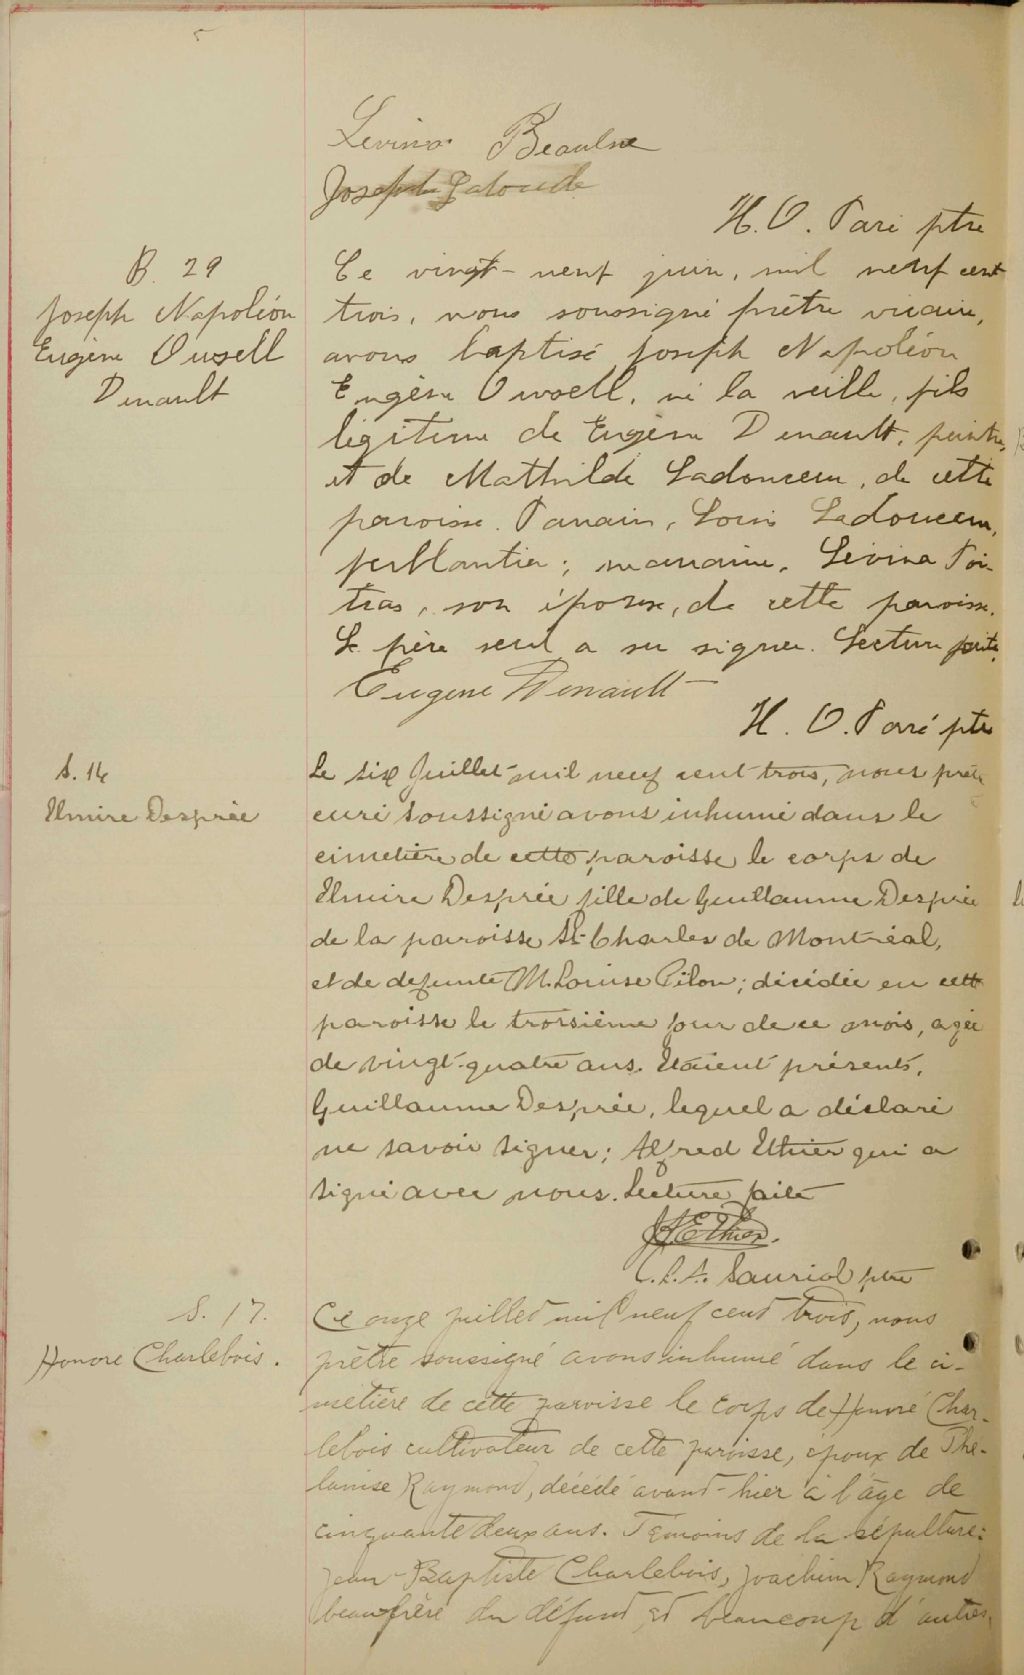 Levina Beaulne
Joseph Galoude
H. O. Paré ptre
B. 29
Joseph Napoléon
Eugène Owsell
Denault
Ce vingt-neuf juin, mil neuf cent
trois, nous soussigné prêtre vicaire,
avons baptisé Joseph Napoléon
Eugène Owsell, né la veille, fils
légitime de Eugène Denault, peintre,
et de Mathilde Ladouceur, de cette
paroisse. Parrain, Louis Ladouceur,
ferblantier; marraine, Levina Poi-
tras, son épouse, de cette paroisse.
Le père seul a su signer. Lecture faite.
Eugene Denault
H. O. Paré ptre
S. 16
Elmire Desprée
Le six Juillet mil neuf cent trois, nous prêtre
curé soussigné avons inhumé dans le
cimetière de cette paroisse le corps de
Elmire Desprée fille de Guillaume Desprée
de la paroisse St-Charles de Montréal,
et de defunte M. Louise Pilon; décédée en cette
paroisse le troisième jour de ce mois, agée
de vingt-quatre ans. Etaient présents,
Guillaume Desprée, lequel a déclaré
ne savoir signer; Alfred Ethier qui a
signé avec nous. Lecture faite
JA Ethier.
Lauriol ptre
S. 17.
Honore Charlebois.
Ce onze juillet mil neuf cent trois, nous
prêtre soussigné avons inhumé dans le ci-
metière de cette paroisse le corps de Honoré Char-
lebois cultivateur de cette paroisse, époux de Phé-
lanise Raymond, décédé avant-hier à l'âge de
cinquante deux ans. Témoins de la sépulture:
Jean-Baptiste Charlebois, Joachim Raymond
beaufrère du défunt et beaucoup d'autres